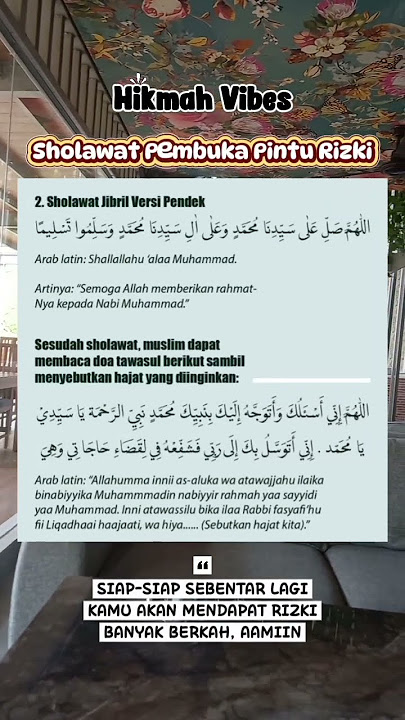 Hikmah Vibes
Sholawat Pembuka Pintu Rizki
2. Sholawat Jibril Versi Pendek
اللّٰهُمَّ صَلِّ عَلٰى سَيِّدِنَا مُحَمَّدٍ وَعَلٰى اٰلِ سَيِّدِنَا مُحَمَّدٍ وَسَلِّمُوا تَسْلِيمًا
Arab latin: Shallallahu ‘alaa Muhammad.
Artinya: “Semoga Allah memberikan rahmat-
Nya kepada Nabi Muhammad.”
Sesudah sholawat, muslim dapat
membaca doa tawasul berikut sambil
menyebutkan hajat yang diinginkan:
اللّٰهُمَّ اِنِّي أَسْئَلُكَ وَأَتَوَجَّهُ إِلَيْكَ بِنَبِيِّكَ مُحَمَّدٍ نَبِيِّ الرَّحْمَةِ يَا سَيِّدِيْ
يَا مُحَمَّد . إِنِّي أَتَوَسَّلُ بِكَ إِلَى رَبِّي فَشَفِّعْهُ فِي لِقَضَاءِ حَاجَاتِي وَهِيَ
Arab latin: “Allahumma innii as-aluka wa atawajjahu ilaika
binabiyyika Muhammmadin nabiyyir rahmah yaa sayyidi
yaa Muhammad. Inni atawassilu bika ilaa Rabbi fasyafi’hu
fii Liqadhaai haajaati, wa hiya...... (Sebutkan hajat kita).”
“
SIAP-SIAP SEBENTAR LAGI
KAMU AKAN MENDAPAT RIZKI
BANYAK BERKAH, AAMIIN